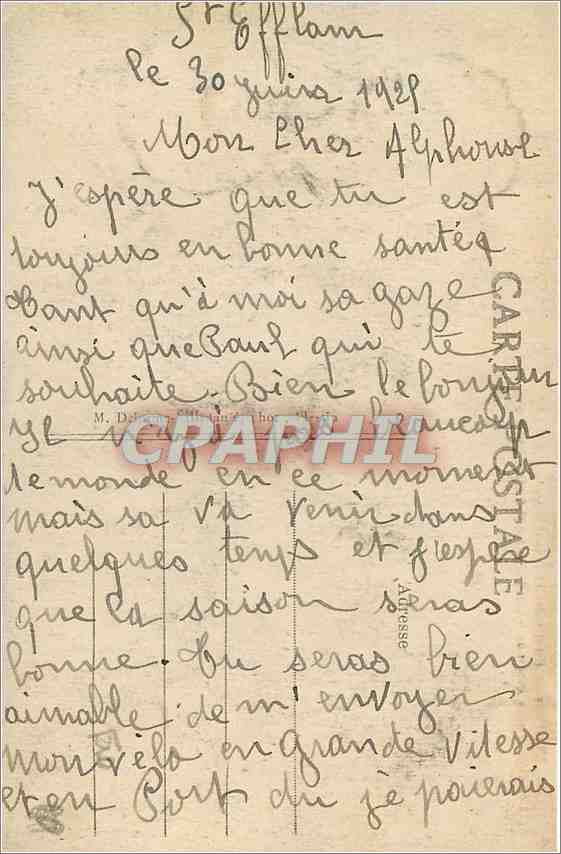 St Efflam
le 30 juin 192
Mon Cher Alphonse
J'espère que tu est
toujours en bonne santée
tant qu'à moi sa gaze
ainsi que Paul qui te
souhaite. Bien le bonjour
pas beaucoup
le monde en ce moment
mais sa va venir dans
quelques temps et j'espere
que la saison seras
bonne. Tu seras bien
aimable de m'envoyer
mon vélo en Grande Vitesse
et en Port du je paierais
CARTE POSTALE
Adresse
CPARPHIL